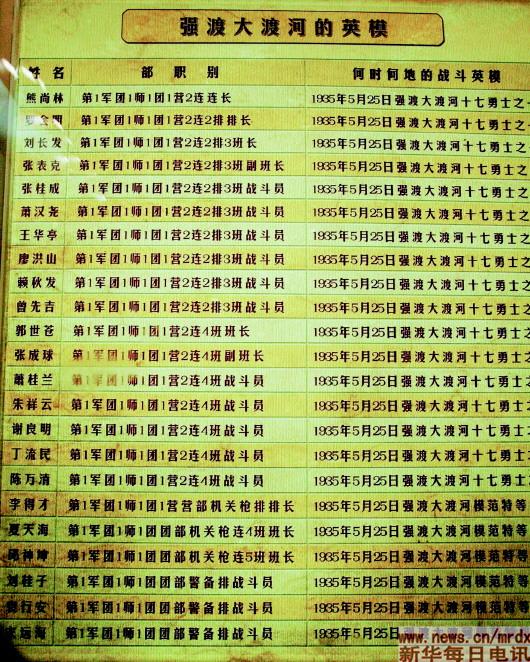 强渡大渡河的英模
姓名 部职别 何时何地的战斗英模
熊尚林 第1军团1师1团1营2连连长 1935年5月25日强渡大渡河十七勇士之
第1军团1师1团1营2连2排排长 1935年5月25日强渡大渡河十七勇士之
刘长发 第1军团1师1团1营2连2排3班长 1935年5月25日强渡大渡河十七勇士之
张表克 第1军团1师1团1营2连2排3班副班长 1935年5月25日强渡大渡河十七勇士之
张桂成 第1军团1师1团1营2连2排3班战斗员 1935年5月25日强渡大渡河十七勇士之
萧汉尧 第1军团1师1团1营2连2排3班战斗员 1935年5月25日强渡大渡河十七勇士之
王华亭 第1军团1师1团1营2连2排3班战斗员 1935年5月25日强渡大渡河十七勇士之
廖洪山 第1军团1师1团1营2连2排3班战斗员 1935年5月25日强渡大渡河十七勇士之
赖秋发 第1军团1师1团1营2连2排3班战斗员 1935年5月25日强渡大渡河十七勇士之
曾先吉 第1军团1师1团1营2连2排3班战斗员 1935年5月25日强渡大渡河十七勇士之
郭世苍 第1军团1师1团1营2连4班班长 1935年5月25日强渡大渡河十七勇士之
张成球 第1军团1师1团1营2连4班副班长 1935年5月25日强渡大渡河十七勇士之
萧桂兰 第1军团1师1团1营2连4班战斗员 1935年5月25日强渡大渡河十七勇士之
朱祥云 第1军团1师1团1营2连4班战斗员 1935年5月25日强渡大渡河十七勇士之
谢良明 第1军团1师1团1营2连4班战斗员 1935年5月25日强渡大渡河十七勇士之
丁流民 第1军团1师1团1营2连4班战斗员 1935年5月25日强渡大渡河十七勇士之
陈万清 第1军团1师1团1营2连4班战斗员 1935年5月25日强渡大渡河十七勇士之
李得才 第1军团1师1团1营营部机关枪排排长 1935年5月25日强渡大渡河模范特等
夏天海 第1军团1师1团团部机关枪连4班班长 1935年5月25日强渡大渡河模范特等
第1军团1师1团团部机关枪连5班班长 1935年5月25日强渡大渡河模范特等
刘桂子 第1军团1师1团团部警备排战斗员 1935年5月25日强渡大渡河模范特等
第1军团1师1团团部警备排战斗员 1935年5月25日强渡大渡河模范特等
第1军团1师1团团部警备排战斗员 1935年5月25日
www.news.cn/mrdx
新华每日电讯